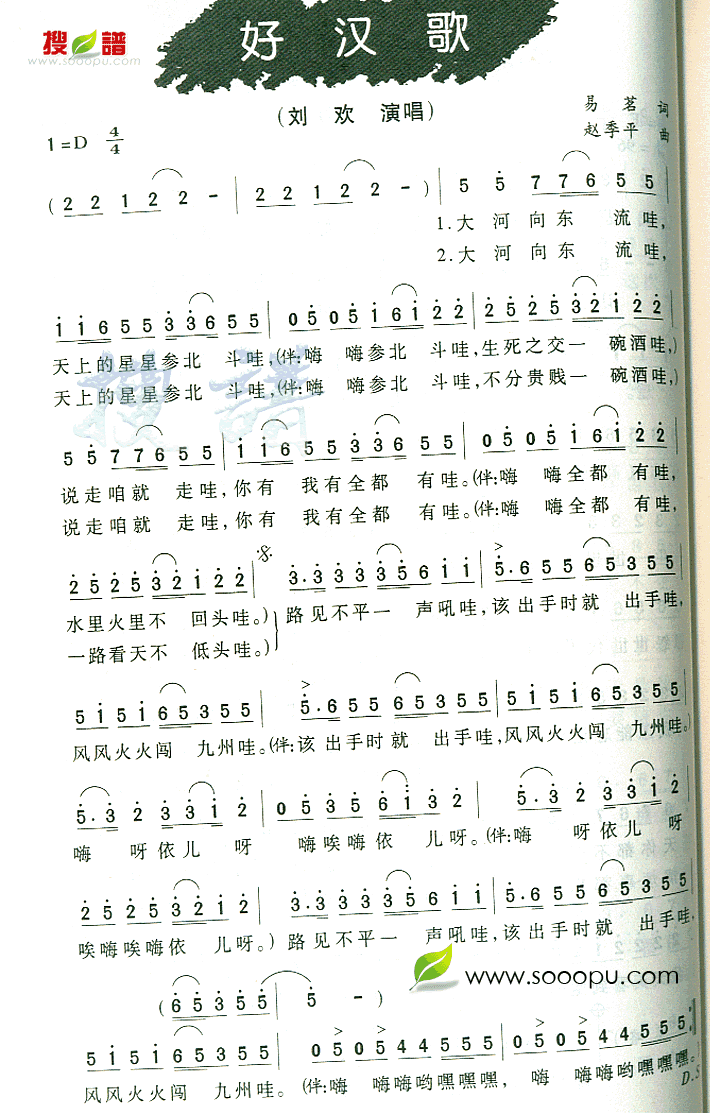 搜谱
www.sooopu.com
好汉歌
(刘 欢 演唱)
易 茗 词
1=D 4/4
赵季平 曲
( 2 2 1 2 2 - | 2 2 1 2 2 - ) | 5 5 7 7 6 5 5
1.大 河 向 东 流 哇,
2.大 河 向 东 流 哇,
1 1 6 5 5 3 3 6 5 5 | 0 5 0 5 1 6 1 2 2 | 2 5 2 5 3 2 1 2 2
天上的星星参北 斗哇,(伴:嗨 嗨参北 斗哇,生死之交一 碗酒哇,)
天上的星星参北 斗哇,(伴:嗨 嗨参北 斗哇,不分贵贱一 碗酒哇,)
5 5 7 7 6 5 5 | 1 1 6 5 5 3 3 6 5 5 | 0 5 0 5 1 6 1 2 2
说走咱就 走哇,你有 我有全都 有哇。(伴:嗨 嗨全都 有哇,
说走咱就 走哇,你有 我有全都 有哇。(伴:嗨 嗨全都 有哇,
2 5 2 5 3 2 1 2 2 | 3. 3 3 3 3 5 6 1 1 | 5. 6 5 5 6 5 3 5 5
水里火里不 回头哇。) 路见不平一 声吼哇,该出手时就 出手哇,
一路看天不 低头哇。)
5 1 5 1 6 5 3 5 5 | 5. 6 5 5 6 5 3 5 5 | 5 1 5 1 6 5 3 5 5
风风火火闯 九州哇。(伴:该出手时就 出手哇,风风火火闯 九州哇。)
5. 3 2 3 3 1 2 | 0 5 3 5 6 1 3 2 | 5. 3 2 3 3 1 2
嗨 呀依儿 呀 嗨唉嗨依 儿呀。(伴:嗨 呀依儿 呀
2 5 2 5 3 2 1 2 | 3. 3 3 3 3 5 6 1 1 | 5. 6 5 5 6 5 3 5 5
唉嗨唉嗨依 儿呀。) 路见不平一 声吼哇,该出手时就 出手哇,
www.sooopu.com
( 6 5 3 5 5 | 5 - )
5 1 5 1 6 5 3 5 5 | 0 5 0 5 4 4 5 5 5 | 0 5 0 5 4 4 5 5 5
风风火火闯 九州哇。(伴:嗨 嗨嗨哟嘿嘿嘿, 嗨 嗨嗨哟嘿嘿嘿。
D.S